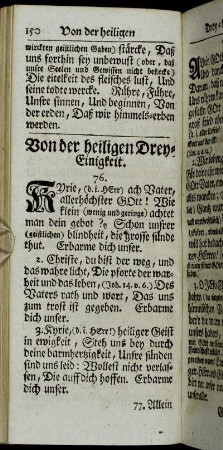 150 Von der heiligen
wirckten geistlichen Gaben) stärcke, Daß
uns forthin sey unbewust (oder, daß
unsre Seelen und Gewissen nicht beflecke)
Die eitelkeit des fleisches lust, Und
seine todte wercke. Rühre, Führe,
Unsre sinnen, Und beginnen, Von
der erden, Daß wir himmels-erben
werden.
Von der heiligen Drey-
Einigkeit.
76.
KYrie, (d. i. HErr) ach Vater,
allerhöchster GOtt! Wie
klein (wenig und geringe) achtet
man dein gebot? Schon unsrer
(geistlichen) blindheit, die grosse sünde
thut. Erbarme dich unser.
2. Christe, du bist der weg, und
das wahre licht, Die pforte der war-
heit und das leben, (Joh. 14. v. 6.) Des
Vaters rath und wort, Das uns
zum trost ist gegeben. Erbarme
dich unser.
3. Kyrie, (d. i. HErr!) heiliger Geist
in ewigkeit, Steh uns bey durch
deine barmhertzigkeit, Unsre sünden
sind uns leid: Wollest nicht verlas-
sen, Die auff dich hoffen. Erbarme
dich unser.
77. Allein